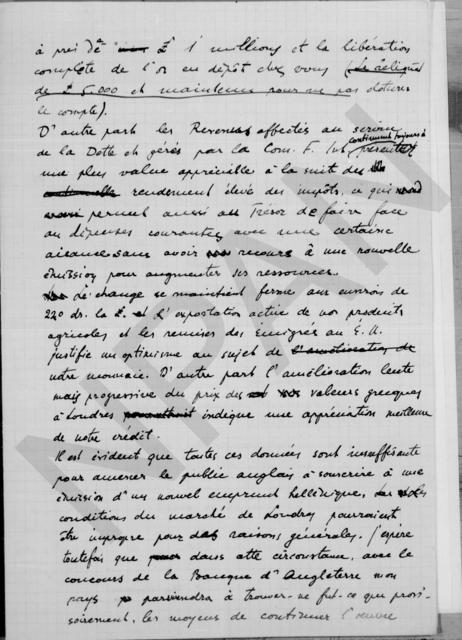 à près de £ 1 millions et la libération
complète de l'or en dépôt chez vous (le reliquat
de £ 5.000 est maintenu pour ne pas cloturer
le compte).
D'autre part les Revenus affectés au service
de la Dette et gérés par la Com. F. Int. continuent toujours à présenter
une plus value appréciable à la suite des
rendement élevé des impôts, ce qui
permet aussi au Trésor de faire face
au dépenses courantes avec une certaine
aisance sans avoir recours à une nouvelle
émission pour augmenter ses ressources.
Le change se maintient ferme aux environs de
220 dr. la £. et l'exportation active de nos produits
agricoles et les remises des émigrés au E. U.
justifie un optimisme au sujet de l'amélioration de
notre monnaie. D'autre part l'amélioration lente
mais progressive du prix des valeurs grecques
à Londres indique une appréciation meilleure
de notre crédit.
Il est évident que toutes ces données sont insuffisante
pour amener le public anglais à souscrire à une
émission d'un nouvel emprunt hellénique, les
conditions du marché de Londres pourraient
être impropre pour des raisons générales. J'espère
toutefois que dans cette circonstance, avec le
concours de la Banque d'Angleterre mon
pays parviendra à trouver ne fut-ce que provi-
soirement, les moyens de continuer l'œuvre
NPAN